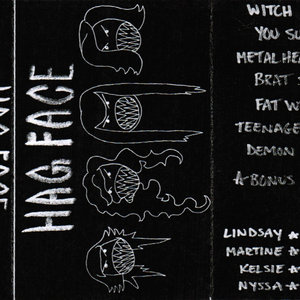 HAG FACE
HAG FACE
WITCH
YOU SU
METALHEA
BRAT
FAT W
TEENAGE
DEMON
A BONUS
LINDSAY ★
MARTINE ★
KELSIE ★
NYSSA ★